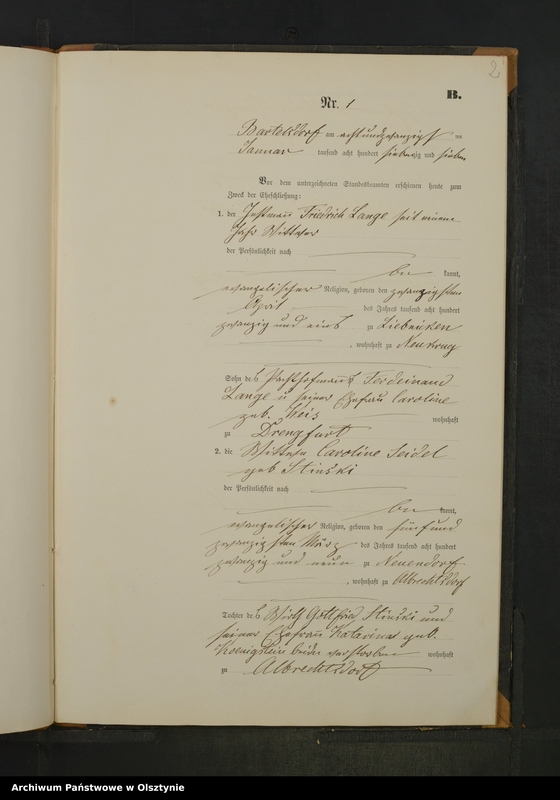 2
B.
Nr. 1
Bartelsdorf am achtundzwanzigsten
Januar tausend acht hundert siebenzig und sieben
Vor dem unterzeichneten Standesbeamten erschienen heute zum
Zweck der Eheschließung:
1. der Instmann Friedrich Lange seit einem
Jahr Wittwer
der Persönlichkeit nach
be kannt,
evangelischer Religion, geboren den zwanzigsten
April des Jahres tausend acht hundert
zwanzig und eins zu Liebnicken
, wohnhaft zu Neukrug
Sohn des Ferdeinand
Lange u seiner Ehefrau Caroline
geb. Weis wohnhaft
zu Drengfurt
2. die Wittwe Caroline Seidel
geb Stinski
der Persönlichkeit nach
be kannt,
evangelischer Religion, geboren den fünfund
zwanzigsten März des Jahres tausend acht hundert
zwanzig und neun zu Neuendorf
, wohnhaft zu Albrechtsdorf
Tochter des Wirth Gottfried Stinski und
seiner Ehefrau Katarina geb.
Koenigstein beide verstorben wohnhaft
zu Albrechtsdorf
Archiwum Państwowe w Olsztynie